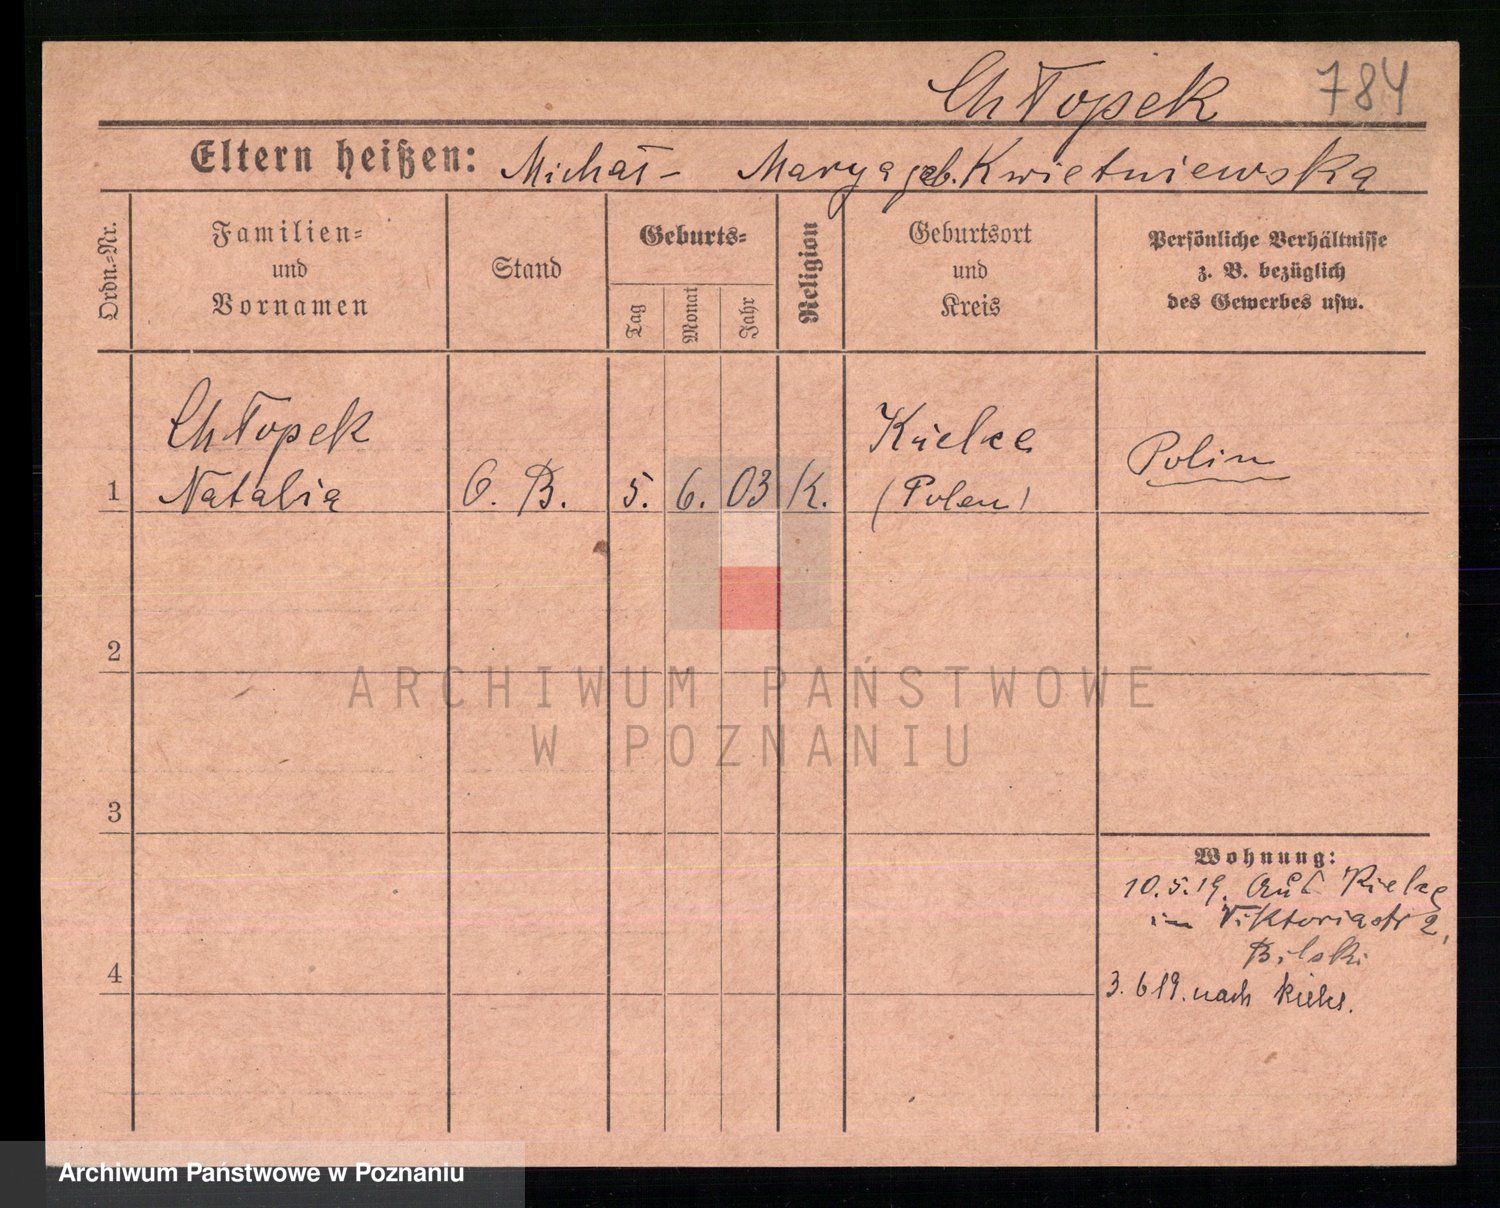 Chłopek 784
Eltern heißen: Michał - Marya geb. Kwietniewska
Ordn.-Nr.
Familien-
und
Vornamen
Stand
Geburts-
Tag
Monat
Jahr
Religion
Geburtsort
und
Kreis
Persönliche Verhältnisse
z. B. bezüglich
des Gewerbes usw.
Chłopek
Kielce
Polin
1 Natalia O. B. 5. 6. 03 K. (Polen)
2
ARCHIWUM PAŃSTWOWE
W POZNANIU
3
Wohnung:
10.5.19. aus Kielce
in Viktoriastr 2,
Bilski
4
3.6.19. nach Kielce.
Archiwum Państwowe w Poznaniu